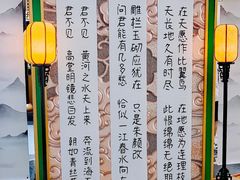 在天愿作比翼鸟
在地愿为连理枝
天长地久有时尽
此恨绵绵无绝期
雕栏玉砌应犹在
只是朱颜改
问君能有几多愁
恰似一江春水向
君不见 黄河之水天上来 奔流到海
君不见 高堂明镜悲白发 朝如青丝